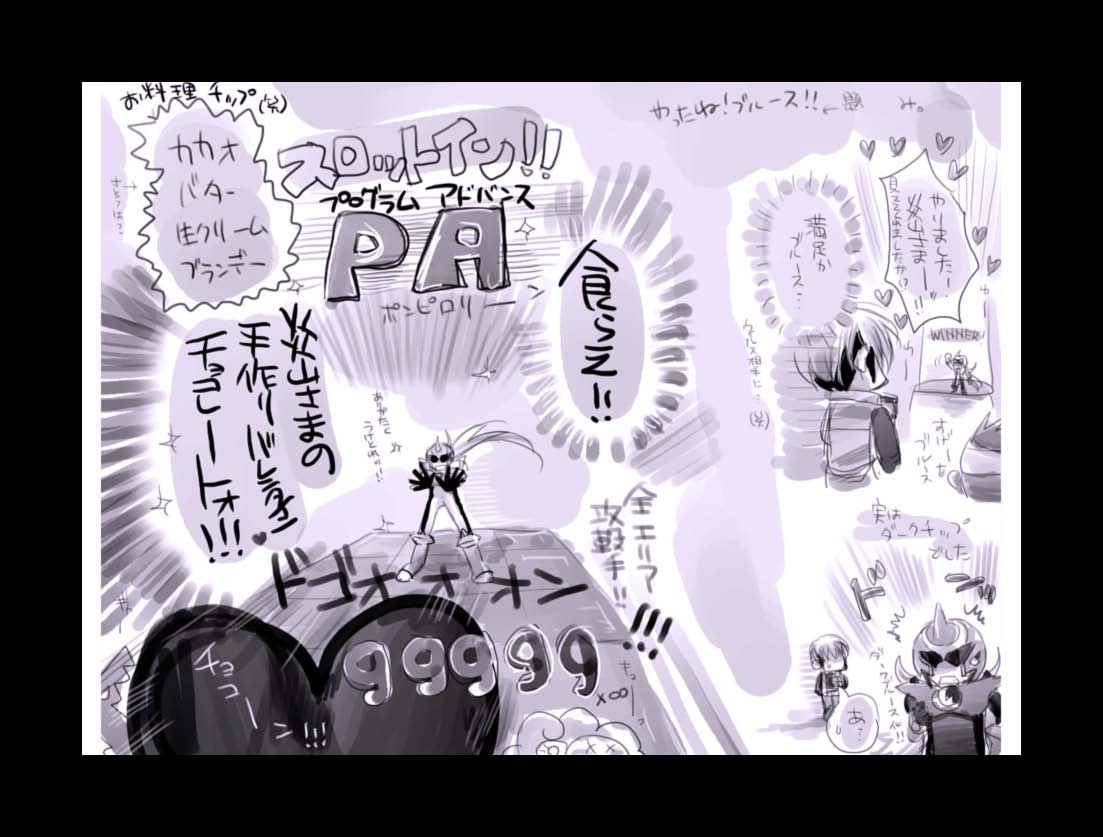 お料理チップ(笑)
カカオ
バター
生クリーム
ブランデー
スロットイン!!
プログラム アドバンス
PA
ポンピロリーン
食らえ!!
炎山さまの
手作りバレンタイン
チョコレートォ!!!
ありがたく
うけとれ!!
ドゴォオオン
全エリア
攻撃!!
!!!
99999
チョコーン!!!
×∞
やったね!ブルース!!
み。
やりましたー
炎山さまーッ!!
見ててくれましたか!?
満足か
ブルース…
ウイルス相手に…
(笑)
WINNER
すげーな
ブルース
実は
ダークチップ
でした
ドーン
ダークブルース化!!
あ…